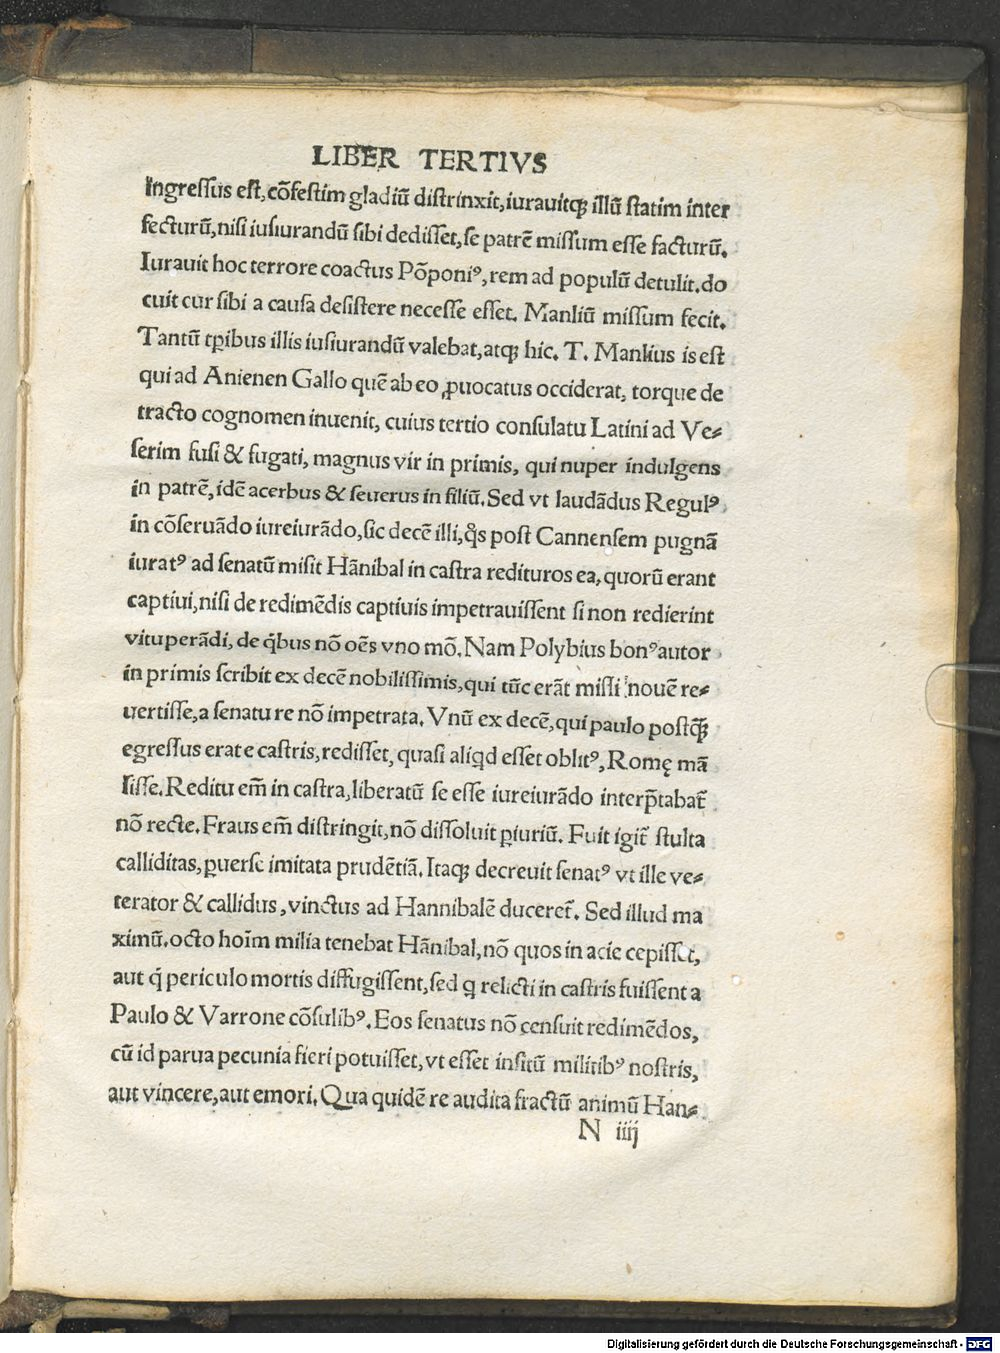 LIBER TERTIVS
ingressus est, cõfestim gladiũ distrinxit, iurauitqꝫ illũ statim inter
fecturũ, nisi iusiurandũ sibi dedisset, se patrẽ missum esse facturũ.
Iurauit hoc terrore coactus Põponiꝰ, rem ad populũ detulit. do
cuit cur sibi a causa desistere necesse esset. Manliũ missum fecit.
Tantũ tꝑibus illis iusiurandũ valebat, atqꝫ hic. T. Manlius is est
qui ad Anienen Gallo quẽ ab eo ꝓuocatus occiderat, torque de
tracto cognomen inuenit, cuius tertio consulatu Latini ad Ve⸗
serim fusi & fugati, magnus vir in primis, qui nuper indulgens
in patrẽ, idẽ acerbus & seuerus in filiũ. Sed vt laudãdus Regulꝰ
in cõseruãdo iureiurãdo, sic decẽ illi, q̃s post Cannensem pugnã
iuratꝰ ad senatũ misit Hãnibal in castra redituros ea, quorũ erant
captiui, nisi de redimẽdis captiuis impetrauissent si non redierint
vituperãdi, de q̃bus nõ oẽs vno mõ. Nam Polybius bonꝰ autor
in primis scribit ex decẽ nobilissimis, qui tũc erãt missi nouẽ re⸗
uertisse, a senatu re nõ impetrata. Vnũ ex decẽ, qui paulo postq̃ꝫ
egressus erat e castris, redisset, quasi aliꝗd esset oblitꝰ, Romę mã
sisse. Reditu em̃ in castra, liberatũ se esse iureiurãdo interp̃tabat᷑
nõ recte. Fraus em̃ distringit, nõ dissoluit ꝑiuriũ. Fuit igit᷑ stulta
calliditas, ꝑuerse imitata prudẽtiã. Itaqꝫ decreuit senatꝰ vt ille ve⸗
terator & callidus, vinctus ad Hannibalẽ duceret᷑. Sed illud ma
ximũ. octo hoim̃ milia tenebat Hãnibal, nõ quos in acie cepisset,
aut q̃ periculo mortis diffugissent, sed ꝗ relicti in castris fuissent a
Paulo & Varrone cõsulibꝰ. Eos senatus nõ censuit redimẽdos,
cũ id parua pecunia fieri potuisset, vt esset insitũ militibꝰ nostris,
aut vincere, aut emori. Qua quidẽ re audita fractũ animũ Han⸗
N iiij
Digitalisierung gefördert durch die Deutsche Forschungsgemeinschaft - DFG